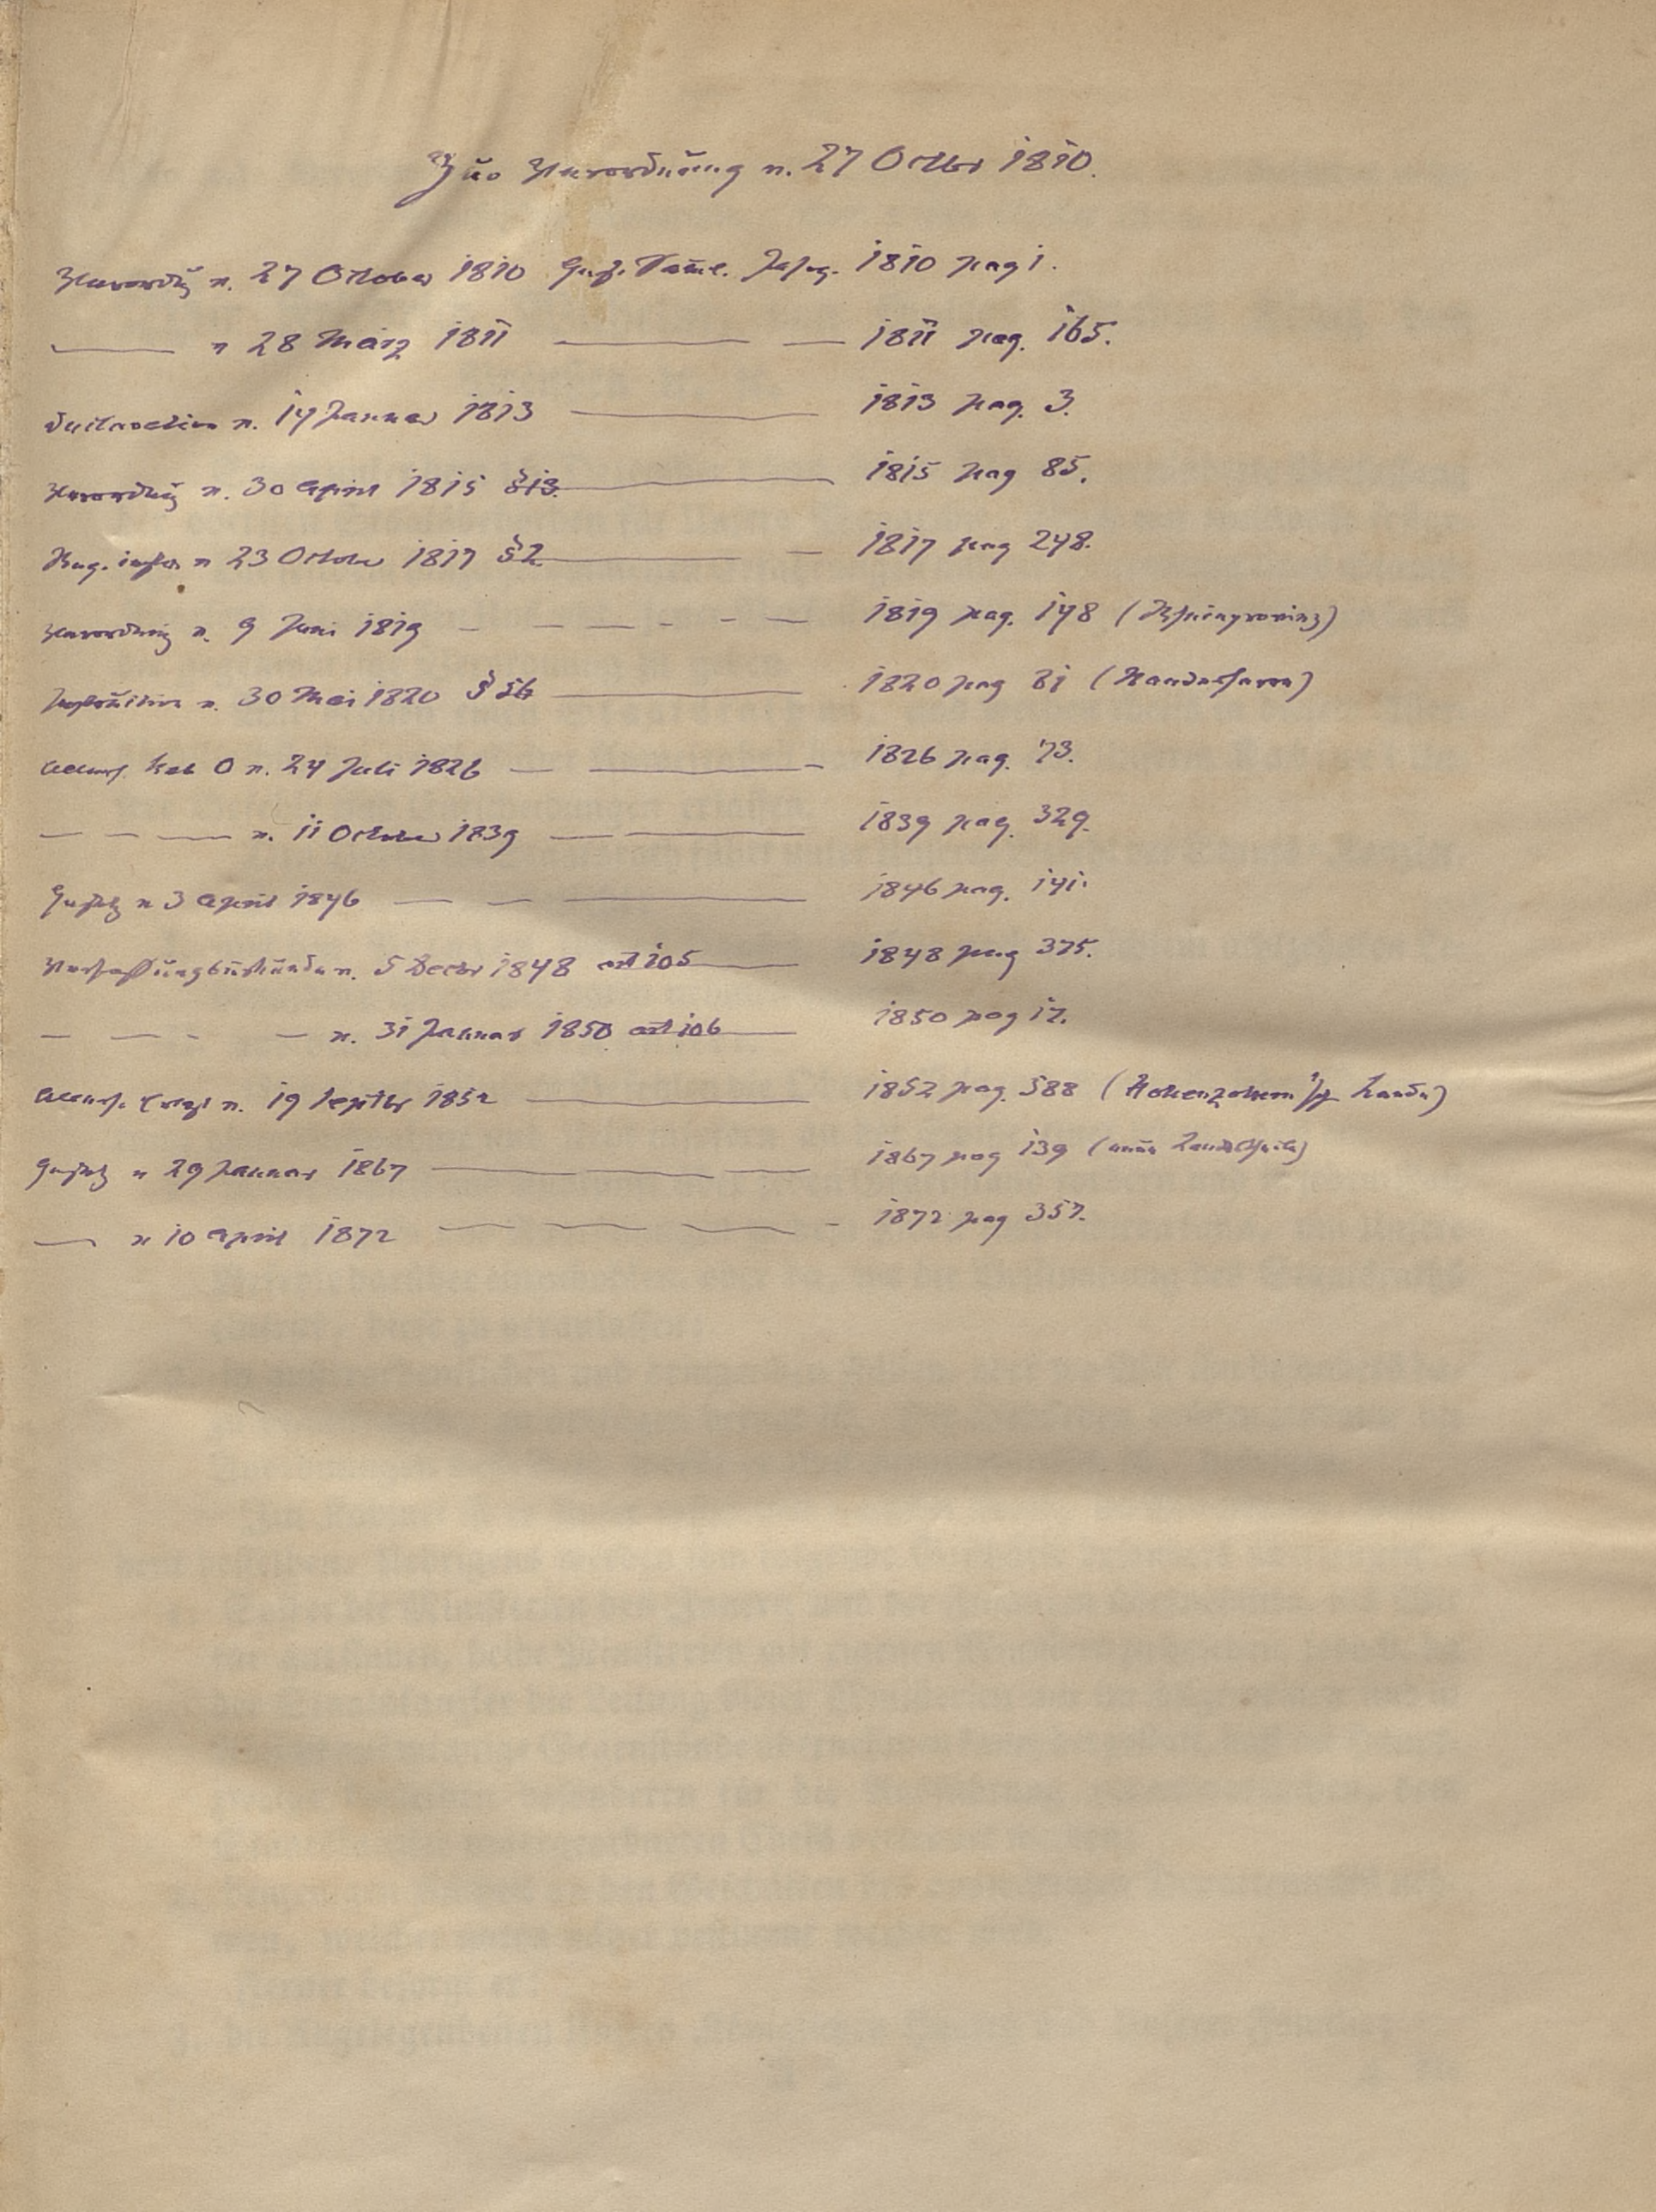 Zur Verordnung v. 27 Octbr 1810.
Verordng v. 27 October 1810 Ges. Saml. Jahrg. 1810 pag 1.
——— v 28 März 1811 ——— — 1811 pag. 165.
Declaration v. 14 Januar 1813 ——— 1813 pag. 3.
Verordng v. 30 April 1815 §13. ——— 1815 pag 85.
Reg. instr. v 23 October 1817 §2 ——— — 1817 pag 248.
Verordnung v. 9 Juni 1819 — — — - - — 1819 pag. 148 (Rheinprovinz)
Instruktion v. 30 Mai 1820 § 56 ——— 1820 pag 81 (Standesherren)
Allerh. Kab O v. 24 Juli 1826 — ——— 1826 pag. 73.
— — — v. 11 October 1839 — ——— 1839 pag. 329.
Gesetz v 3 April 1846 — — ——— 1846 pag. 141.
Verfassungsurkunde v. 5 Decbr 1848 art 105 ——— 1848 pag 375.
— — - — v. 31 Januar 1850 art 106 ——— 1850 pag 17.
Allerh. Erlaß v. 19 Septbr 1852 ——— 1852 pag. 588 (Hohenzollern'sche Lande)
Gesetz v 29 Januar 1867 ——— — 1867 pag 139 (neue Landestheile)
— v 10 April 1872 — — — - 1872 pag 357.